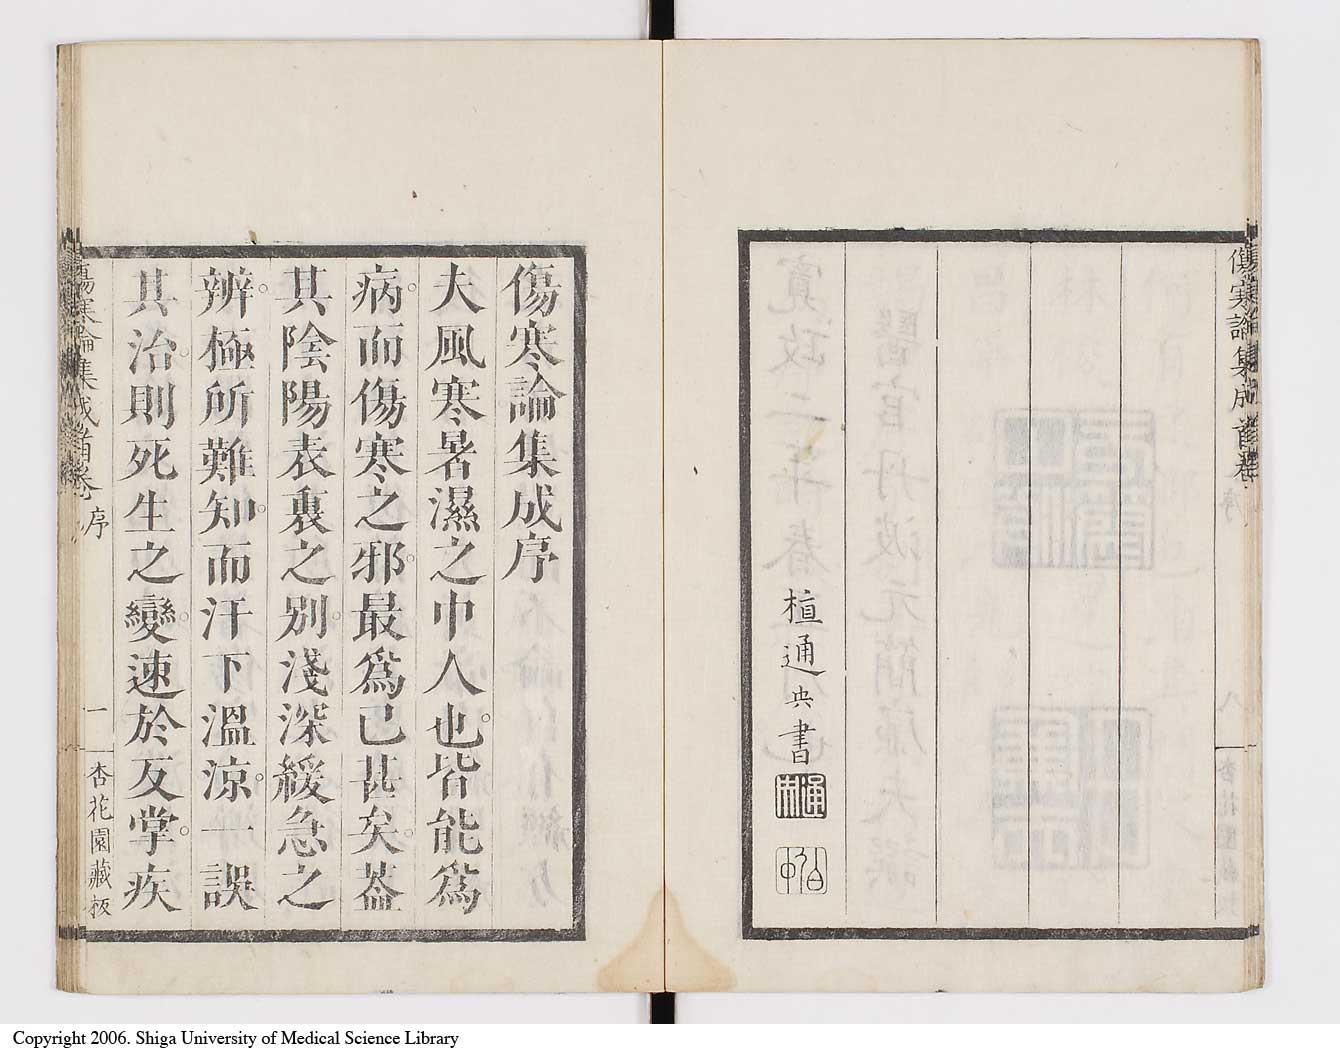 傷寒論集成首卷
序
八
杏花園藏板
植通央書
傷寒論集成序
夫風寒暑濕之中人也。皆能爲
病。而傷寒之邪。最爲已甚矣。蓋
其陰陽表裏之別。淺深緩急之
辨。極所難知。而汗下溫涼。一誤
其治。則死生之變。速於反掌。疾
傷寒論集成首卷
序
一
杏花園藏板
Copyright 2006. Shiga University of Medical Science Library